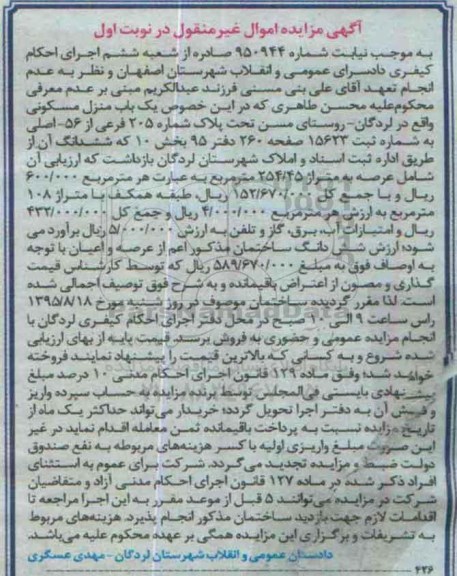 آگهی مزایده اموال غیرمنقول در نوبت اول
به موجب نیابت شماره ۹۵۰۹۴۴ صادره از شعبه ششم اجرای احکام
کیفری دادسرای عمومی و انقلاب شهرستان اصفهان و نظر به عدم
انجام تعهد آقای علی بنی مسنی فرزند عبدالکریم مبنی بر عدم معرفی
محکوم‌علیه محسن طاهری که در این خصوص یک باب منزل مسکونی
واقع در لردگان- روستای مسن تحت پلاک شماره ۲۰۵ فرعی از ۵۶- اصلی
به شماره ثبت ۱۵۶۲۳ صفحه ۲۶۰ دفتر ۹۵ بخش ۱۰ که ششدانگ آن از
طریق اداره ثبت اسناد و املاک شهرستان لردگان بازداشت که ارزیابی آن
شامل عرصه به متراژ ۲۵۴/۴۵ مترمربع به عبارت هر مترمربع ۶۰۰/۰۰۰
ریال و با جمع کل ۱۵۲/۶۷۰/۰۰۰ ریال، طبقه همکف با متراژ ۱۰۸
مترمربع به ارزش هر مترمربع ۴/۰۰۰/۰۰۰ ریال و جمع کل ۴۳۲/۰۰۰/۰۰۰
ریال و امتیازات آب، برق، گاز و تلفن به ارزش ۵/۰۰۰/۰۰۰ ریال برآورد می
شود؛ ارزش شش دانگ ساختمان مذکور اعم از عرصه و اعیان با توجه
به اوصاف فوق به مبلغ ۵۸۹/۶۷۰/۰۰۰ ریال که توسط کارشناس قیمت
گذاری و مصون از اعتراض باقیمانده و به شرح فوق توصیف اجمالی شده
است. لذا مقرر گردیده ساختمان موصوف در روز شنبه مورخ ۱۳۹۵/۸/۱۸
راس ساعت ۹ الی ۱۰ صبح در محل دفتر اجرای احکام کیفری لردگان با
انجام مزایده عمومی و حضوری به فروش برسد. قیمت پایه از بهای ارزیابی
شده شروع و به کسانی که بالاترین قیمت را پیشنهاد نمایند فروخته
خواهد شد؛ وفق ماده ۱۲۹ قانون اجرای احکام مدنی ۱۰ درصد مبلغ
پیشنهادی بایستی فی‌المجلس توسط برنده مزایده به حساب سپرده واریز
و فیش آن به دفتر اجرا تحویل گردد؛ خریدار می‌تواند حداکثر یک ماه از
تاریخ مزایده نسبت به پرداخت باقیمانده ثمن معامله اقدام نماید در غیر
این صورت مبلغ واریزی اولیه با کسر هزینه‌های مربوطه به نفع صندوق
دولت ضبط و مزایده تجدید می‌گردد. شرکت برای عموم به استثنای
افراد ذکر شده در ماده ۱۲۷ قانون اجرای احکام مدنی آزاد و متقاضیان
شرکت در مزایده می‌توانند ۵ قبل از موعد مقرر به این اجرا مراجعه تا
اقدامات لازم جهت بازدید ساختمان مذکور انجام پذیرد. هزینه‌های مربوط
به تشریفات و برگزاری این مزایده همگی بر عهده محکوم علیه می‌باشد.
دادستان عمومی و انقلاب شهرستان لردگان - مهدی عسگری
۴۳۶